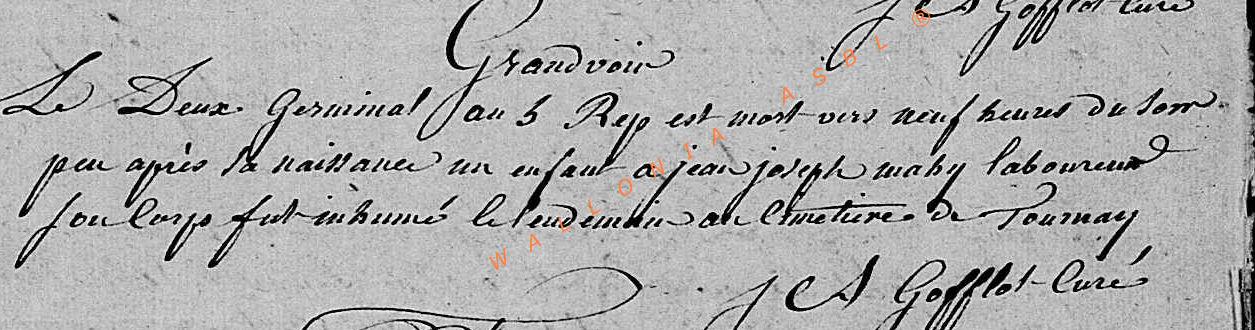 J A Gofflot Curé
Grandvoir
Le Deux Germinal an 5 Rep est mort vers neuf heures du soir
peu après sa naissance un enfant a jean joseph mahy laboureur
son Corps fut inhumé le lendemain au Cimetiere de Tournay
J A Gofflot Curé
WALLONIA ASBL ©